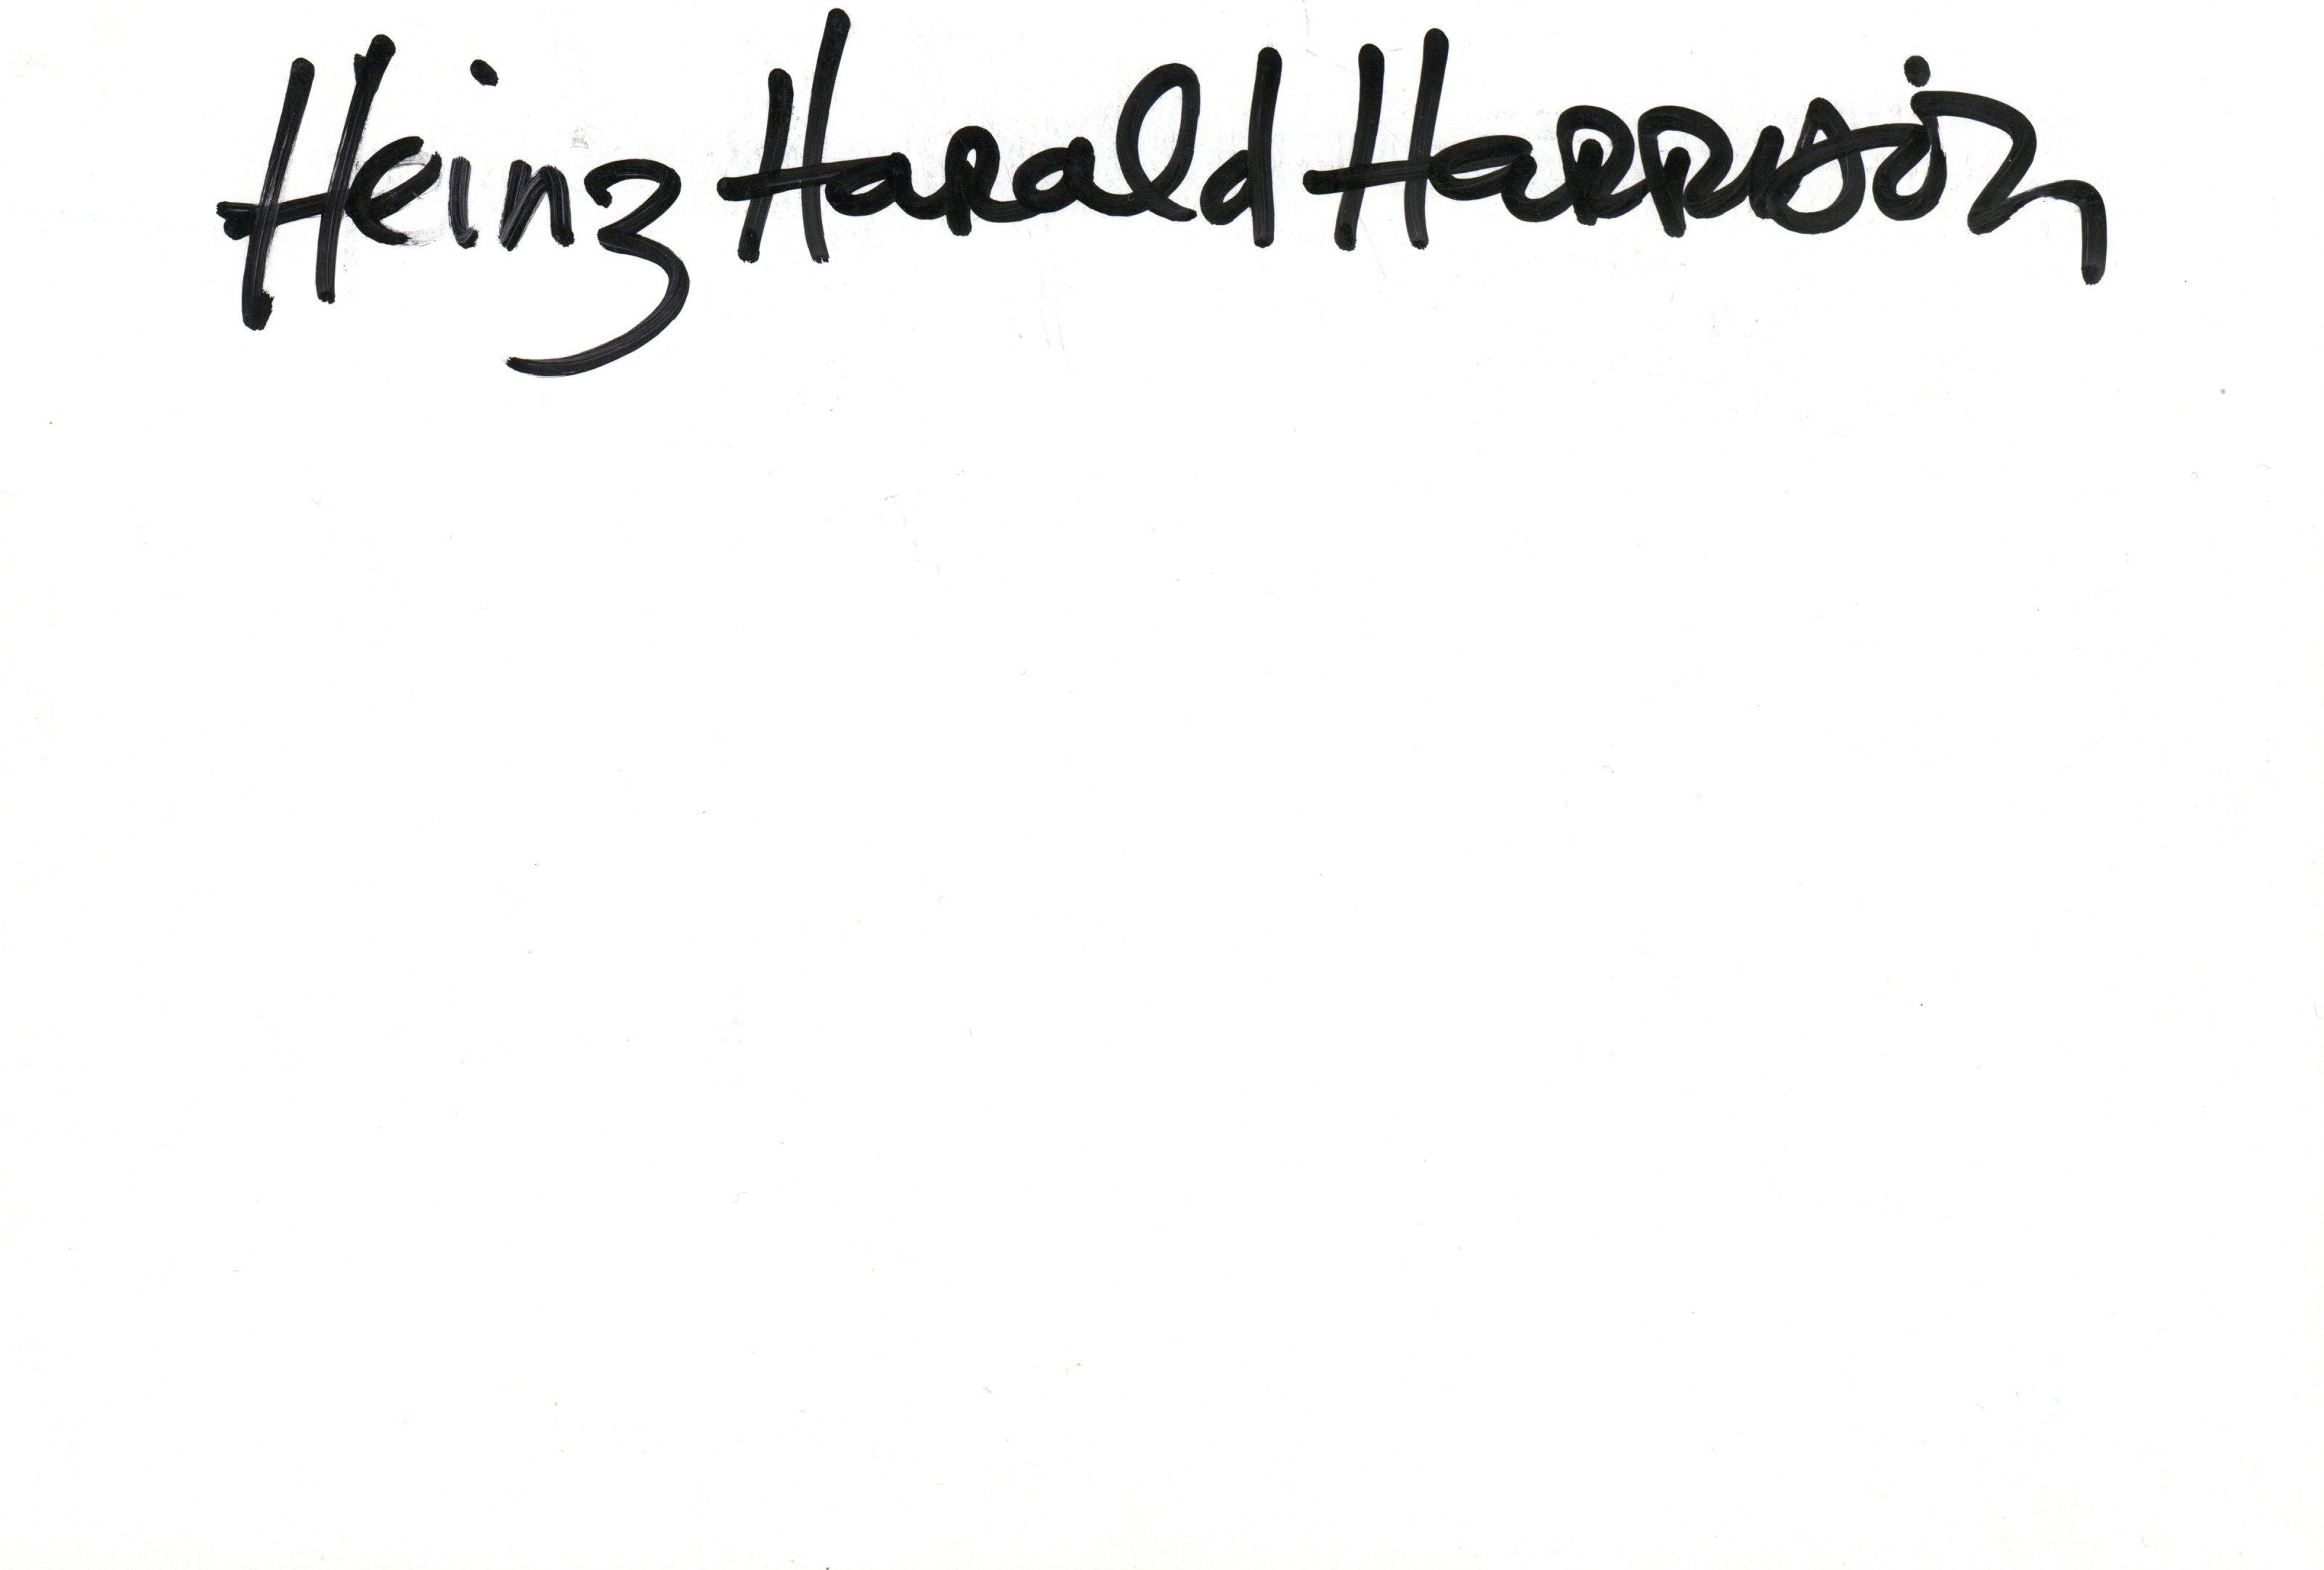 Heinz Harald Harrison